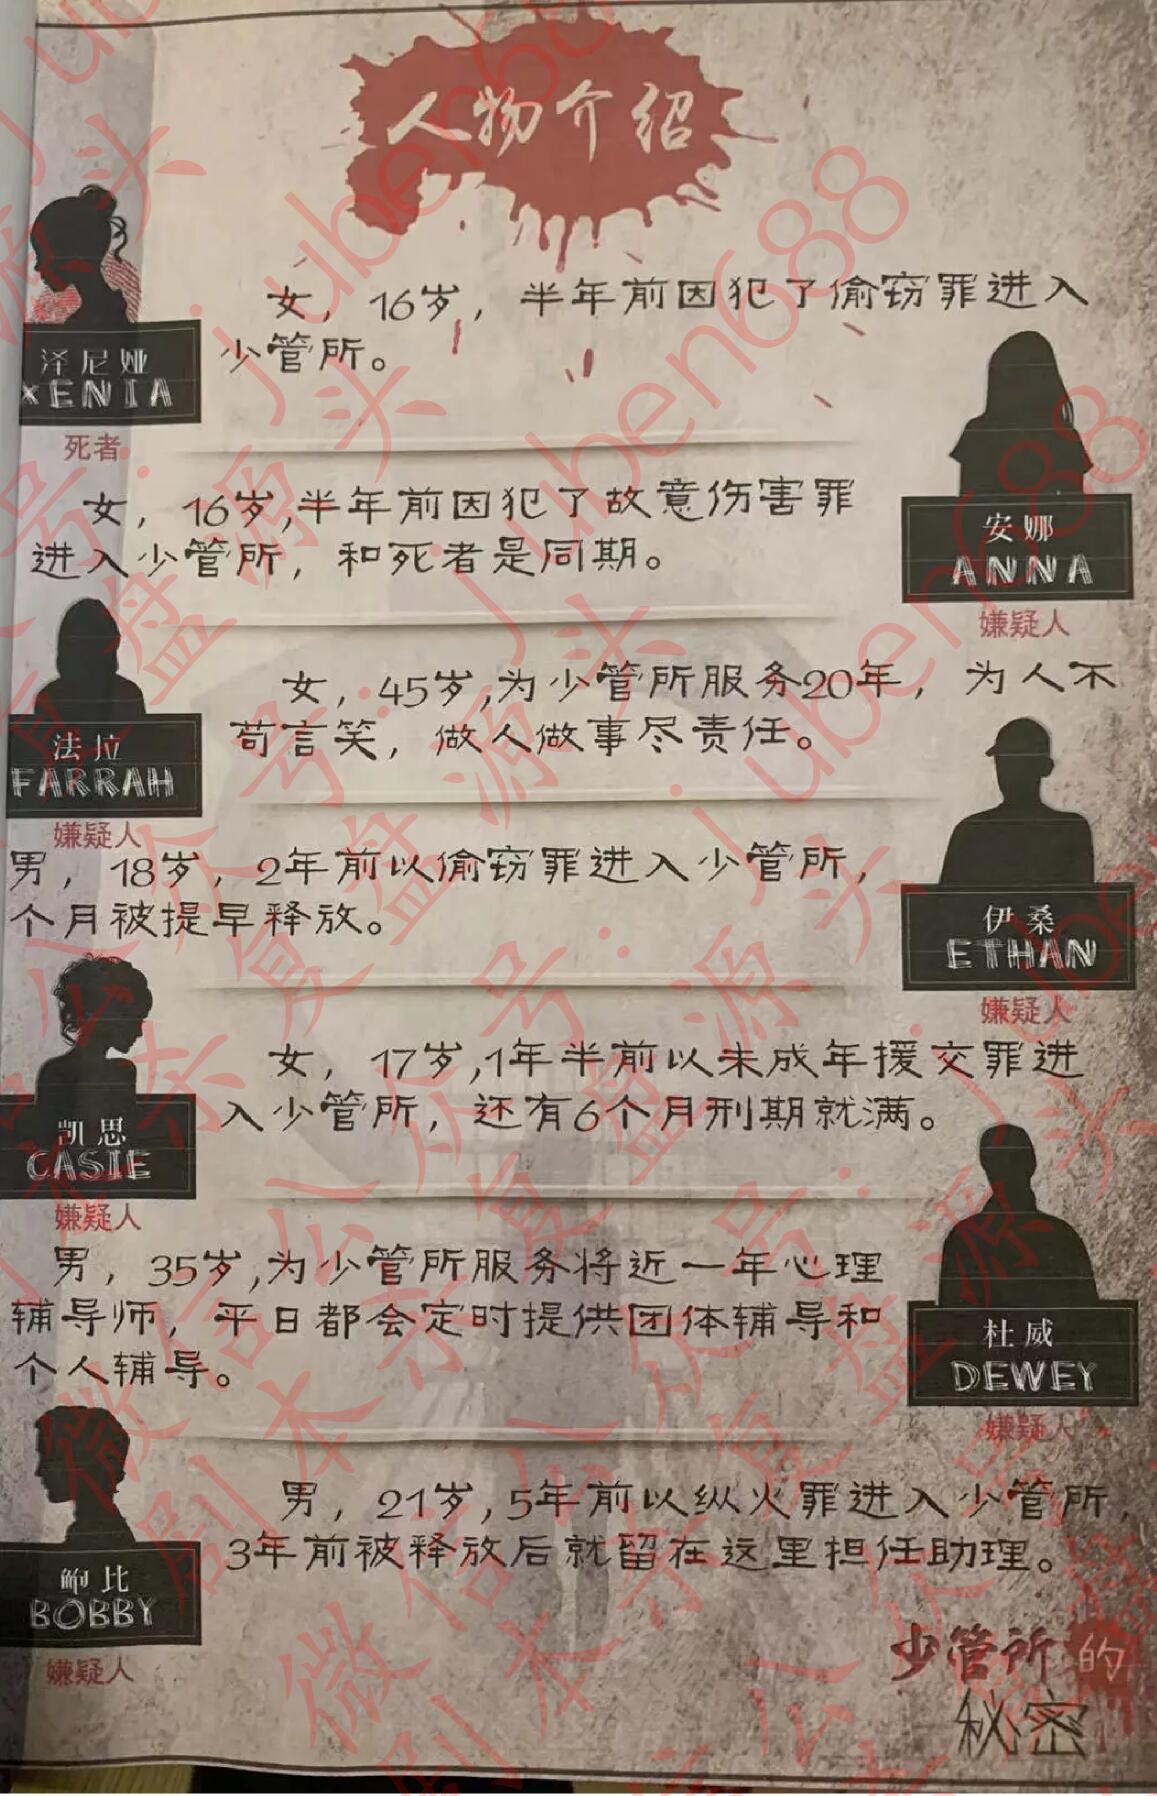 人物介绍
女，16岁，半年前因犯了偷窃罪进入
少管所。
泽尼娅
XENIA
死者
女，16岁，半年前因犯了故意伤害罪
进入少管所，和死者是同期。
安娜
ANNA
嫌疑人
女，45岁，为少管所服务20年，为人不
苟言笑，做人做事尽责任。
法拉
FARRAH
嫌疑人
男，18岁，2年前以偷窃罪进入少管所，
个月被提早释放。
伊桑
ETHAN
嫌疑人
女，17岁，1年半前以未成年援交罪进
入少管所，还有6个月刑期就满。
凯思
CASIE
嫌疑人
男，35岁，为少管所服务将近一年心理
辅导师，平日都会定时提供团体辅导和
个人辅导。
杜威
DEWEY
嫌疑人
男，21岁，5年前以纵火罪进入少管所，
3年前被释放后就留在这里担任助理。
鲍比
BOBBY
嫌疑人
少管所的
秘密